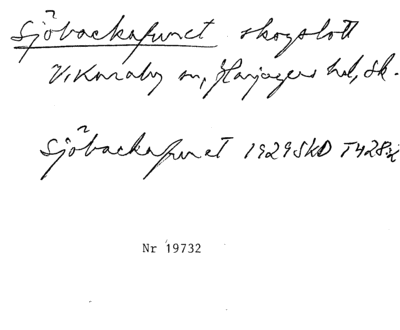 Sjöbackafuret skogslott
V. Karaby sn, Harjagers hd, Sk.
Sjöbackafuret 1929 SkD T428:2
Nr 19732